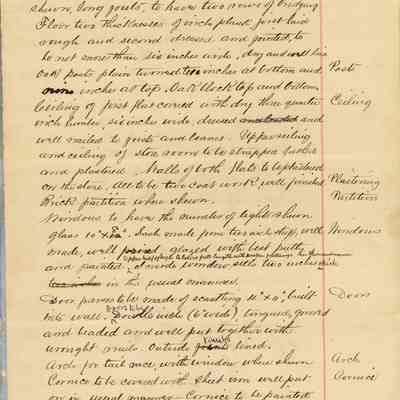 shown, long joists, to have two rows of bridging
Floor two thicknesses of inch plank first laid
rough and second dressed and jointed, to
be not more than six inches wide, dry and well laid
Oak posts plain turned ten inches at bottom and Posts
inches at top. Oak block top and bottom,
Ceiling of first flat covered with dry three quarter Ceiling
inch lumber, six inches wide, dressed and
well nailed to joists and beams. Upper ceiling
and ceiling of store room to be strapped lathed
and plastered. Walls of both flats to be plastered
on the stone, all to be two coat work, well finished Plastering
Brick partition where shown. Partition
Windows to have the number of lights shown
glass 10" x Sash made pine two inch stuff, well Windows
made, well glazed with best putty
and painted. Inside window sills two inches thick
in the usual manner.
Door frames to be made of scantling 4" x 4", built Doors
into wall. Doors inch (6" wide), tongued, grooved
and beaded and well put together with
wrought nails. Outside doors lined.
Arch for tail race, with window where shown Arch
Cornice to be covered with sheet iron well put Cornice
on in usual manner — Cornice to be painted